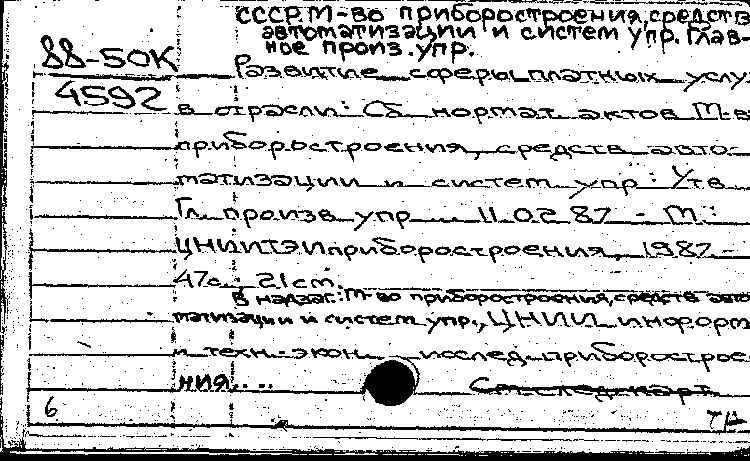 СССР. М-во приборостроения, средств
автоматизации и систем упр. Глав-
ное произ. упр.
88-50К
Развитие сферы платных услу
4592
в отрасли: Сб. нормат. актов М-в
приборостроения, средств авто-
матизации и систем упр.: Утв
Гл. произв. упр. ... 11.02.87 - М.:
ЦНИИТЭИприборостроения, 1987.-
47с.; 21см.
В надзаг.: М-во приборостроения, средств авто
матизации и систем упр., ЦНИИ информ
и техн.-экон. исслед. приборострое
ния....
См. след. карт.
6